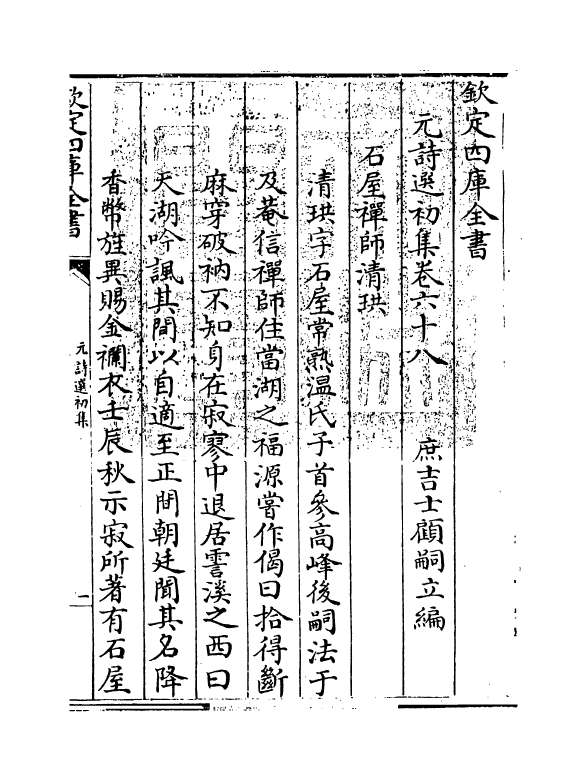 欽定四庫全書
元詩選初集卷六十八　　庶吉士顧嗣立編
石屋禪師清珙
清珙字石屋常熟温氏子首參高峰後嗣法于
及菴信禪師住當湖之福源嘗作偈曰拾得斷
麻穿破衲不知身在寂寥中退居霅溪之西曰
天湖吟諷其間以自適至正間朝廷聞其名降
香幣旌異賜金襴衣壬辰秋示寂所著有石屋
欽定四庫全書
元詩選初集
一